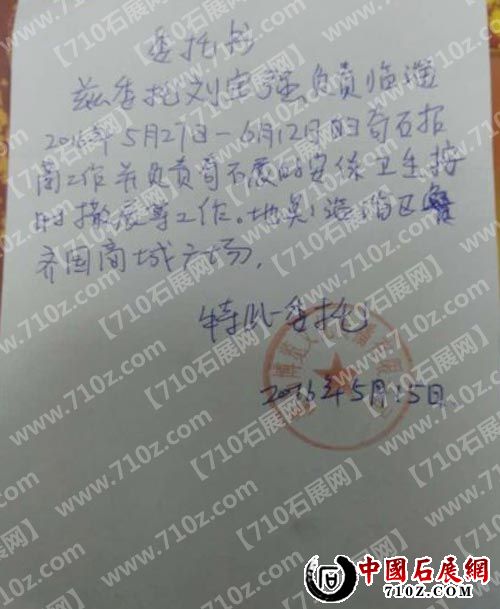 委托书
兹委托刘宝强负责临淄
2016年5月27日—6月12日的奇石招
商工作并负责奇石展的安保卫生按
时撤展等工作。地点:临淄区
齐国商城广场,
特此委托
2016年5月15日
【710石展网】
www.710z.com
中國石展網
710Z.COM